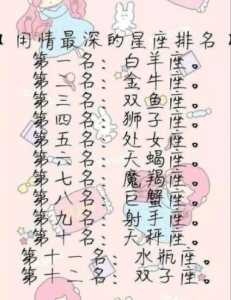 【用情最深的星座排名】
第一名:白羊座。
第二名:金牛座。
第三名:双鱼座。
第四名:狮子座。
第五名:处女座。
第六名:天蝎座。
第七名:魔羯座。
第八名:巨蟹座。
第九名:射手座。
第十名:天秤座。
第十一名:水瓶座。
第十二名:双子座。